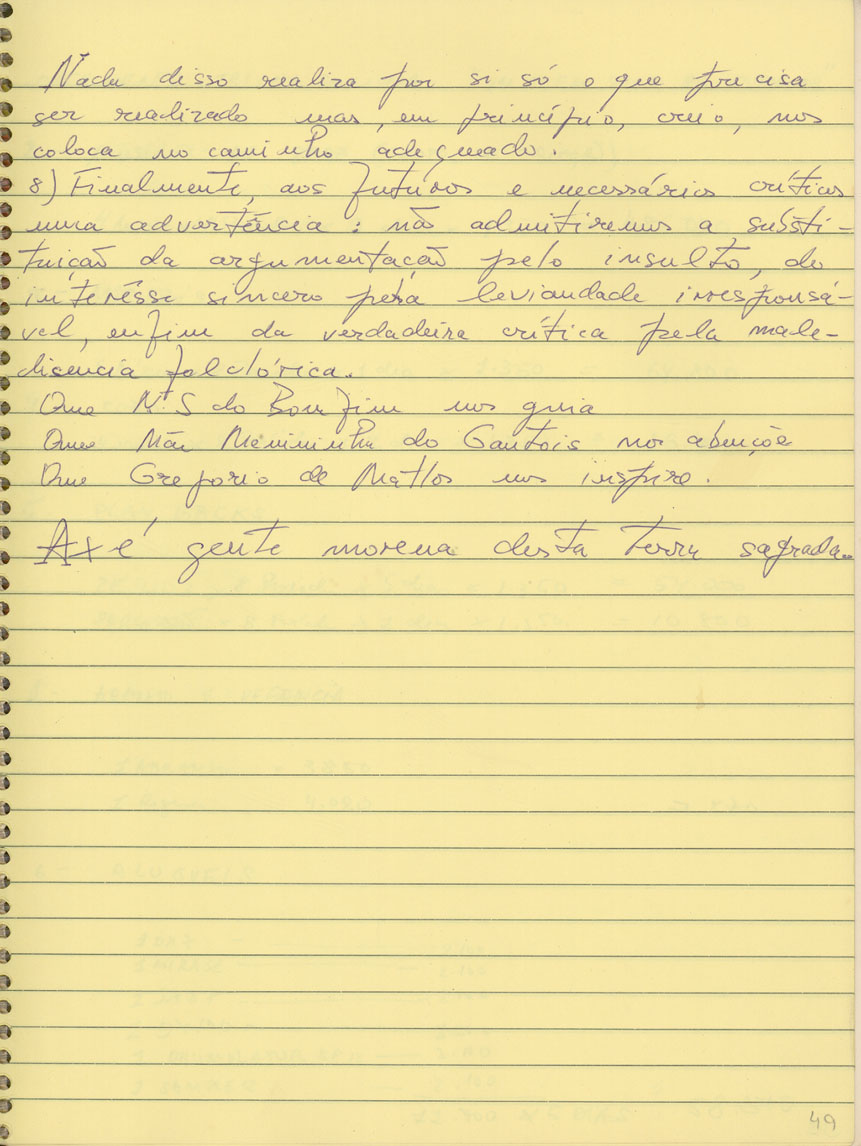 Nada disso realiza por si só o que precisa
ser realizado mas, em princípio, creio, nos
coloca no caminho adequado.
8) Finalmente, aos futuros e necessários críticos
uma advertência: não admitiremos a substi-
tuição da argumentação pelo insulto, do
interêsse sincero pela leviandade irresponsá-
vel, enfim da verdadeira crítica pela male-
discencia folclórica.
Que N.S do Bonfim nos guia
Que Mãe Menininha do Gantois nos abençõe
Que Gregorio de Mattos nos inspire.
Axé gente morena desta terra sagrada.
49